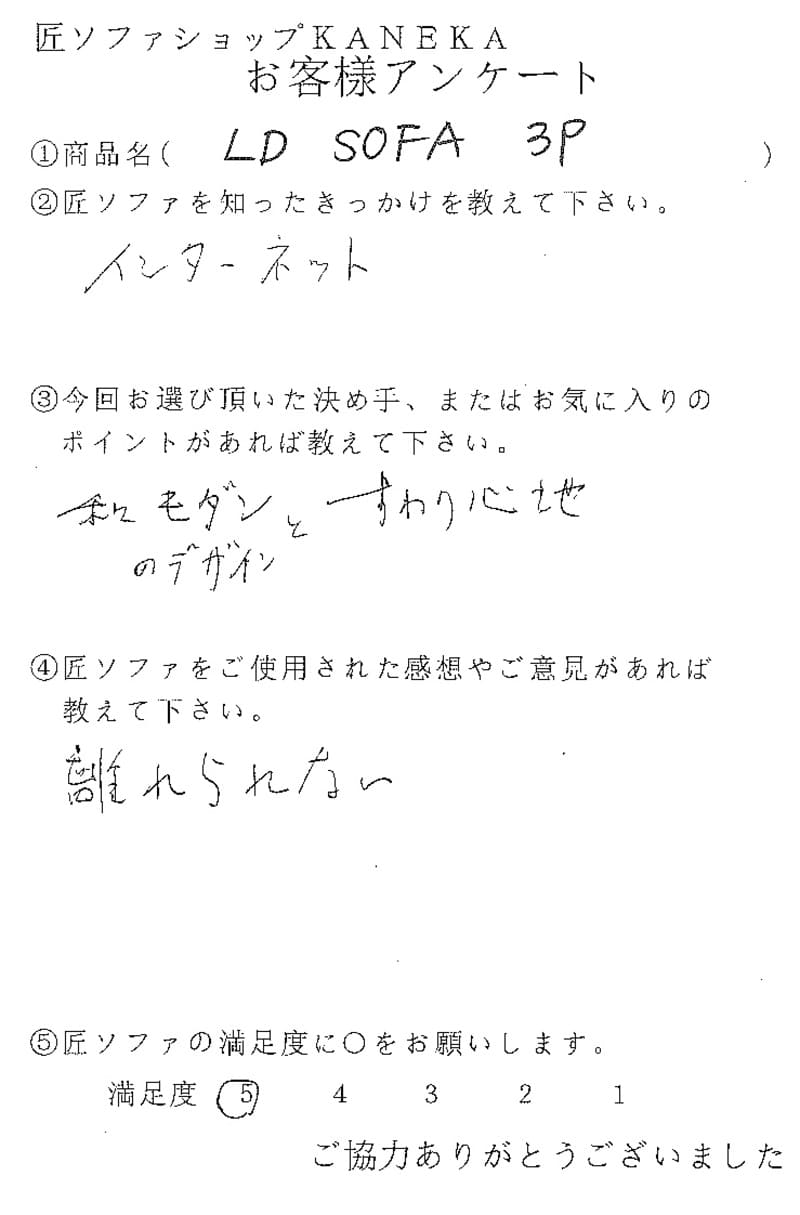 匠ソファショップKANEKA
お客様アンケート
①商品名( LD SOFA 3P )
②匠ソファを知ったきっかけを教えて下さい。
インターネット
③今回お選び頂いた決め手、またはお気に入りの
ポイントがあれば教えて下さい。
和モダンと すわり心地
のデザイン
④匠ソファをご使用された感想やご意見があれば
教えて下さい。
離れられない
⑤匠ソファの満足度に○をお願いします。
満足度 5 4 3 2 1
ご協力ありがとうございました